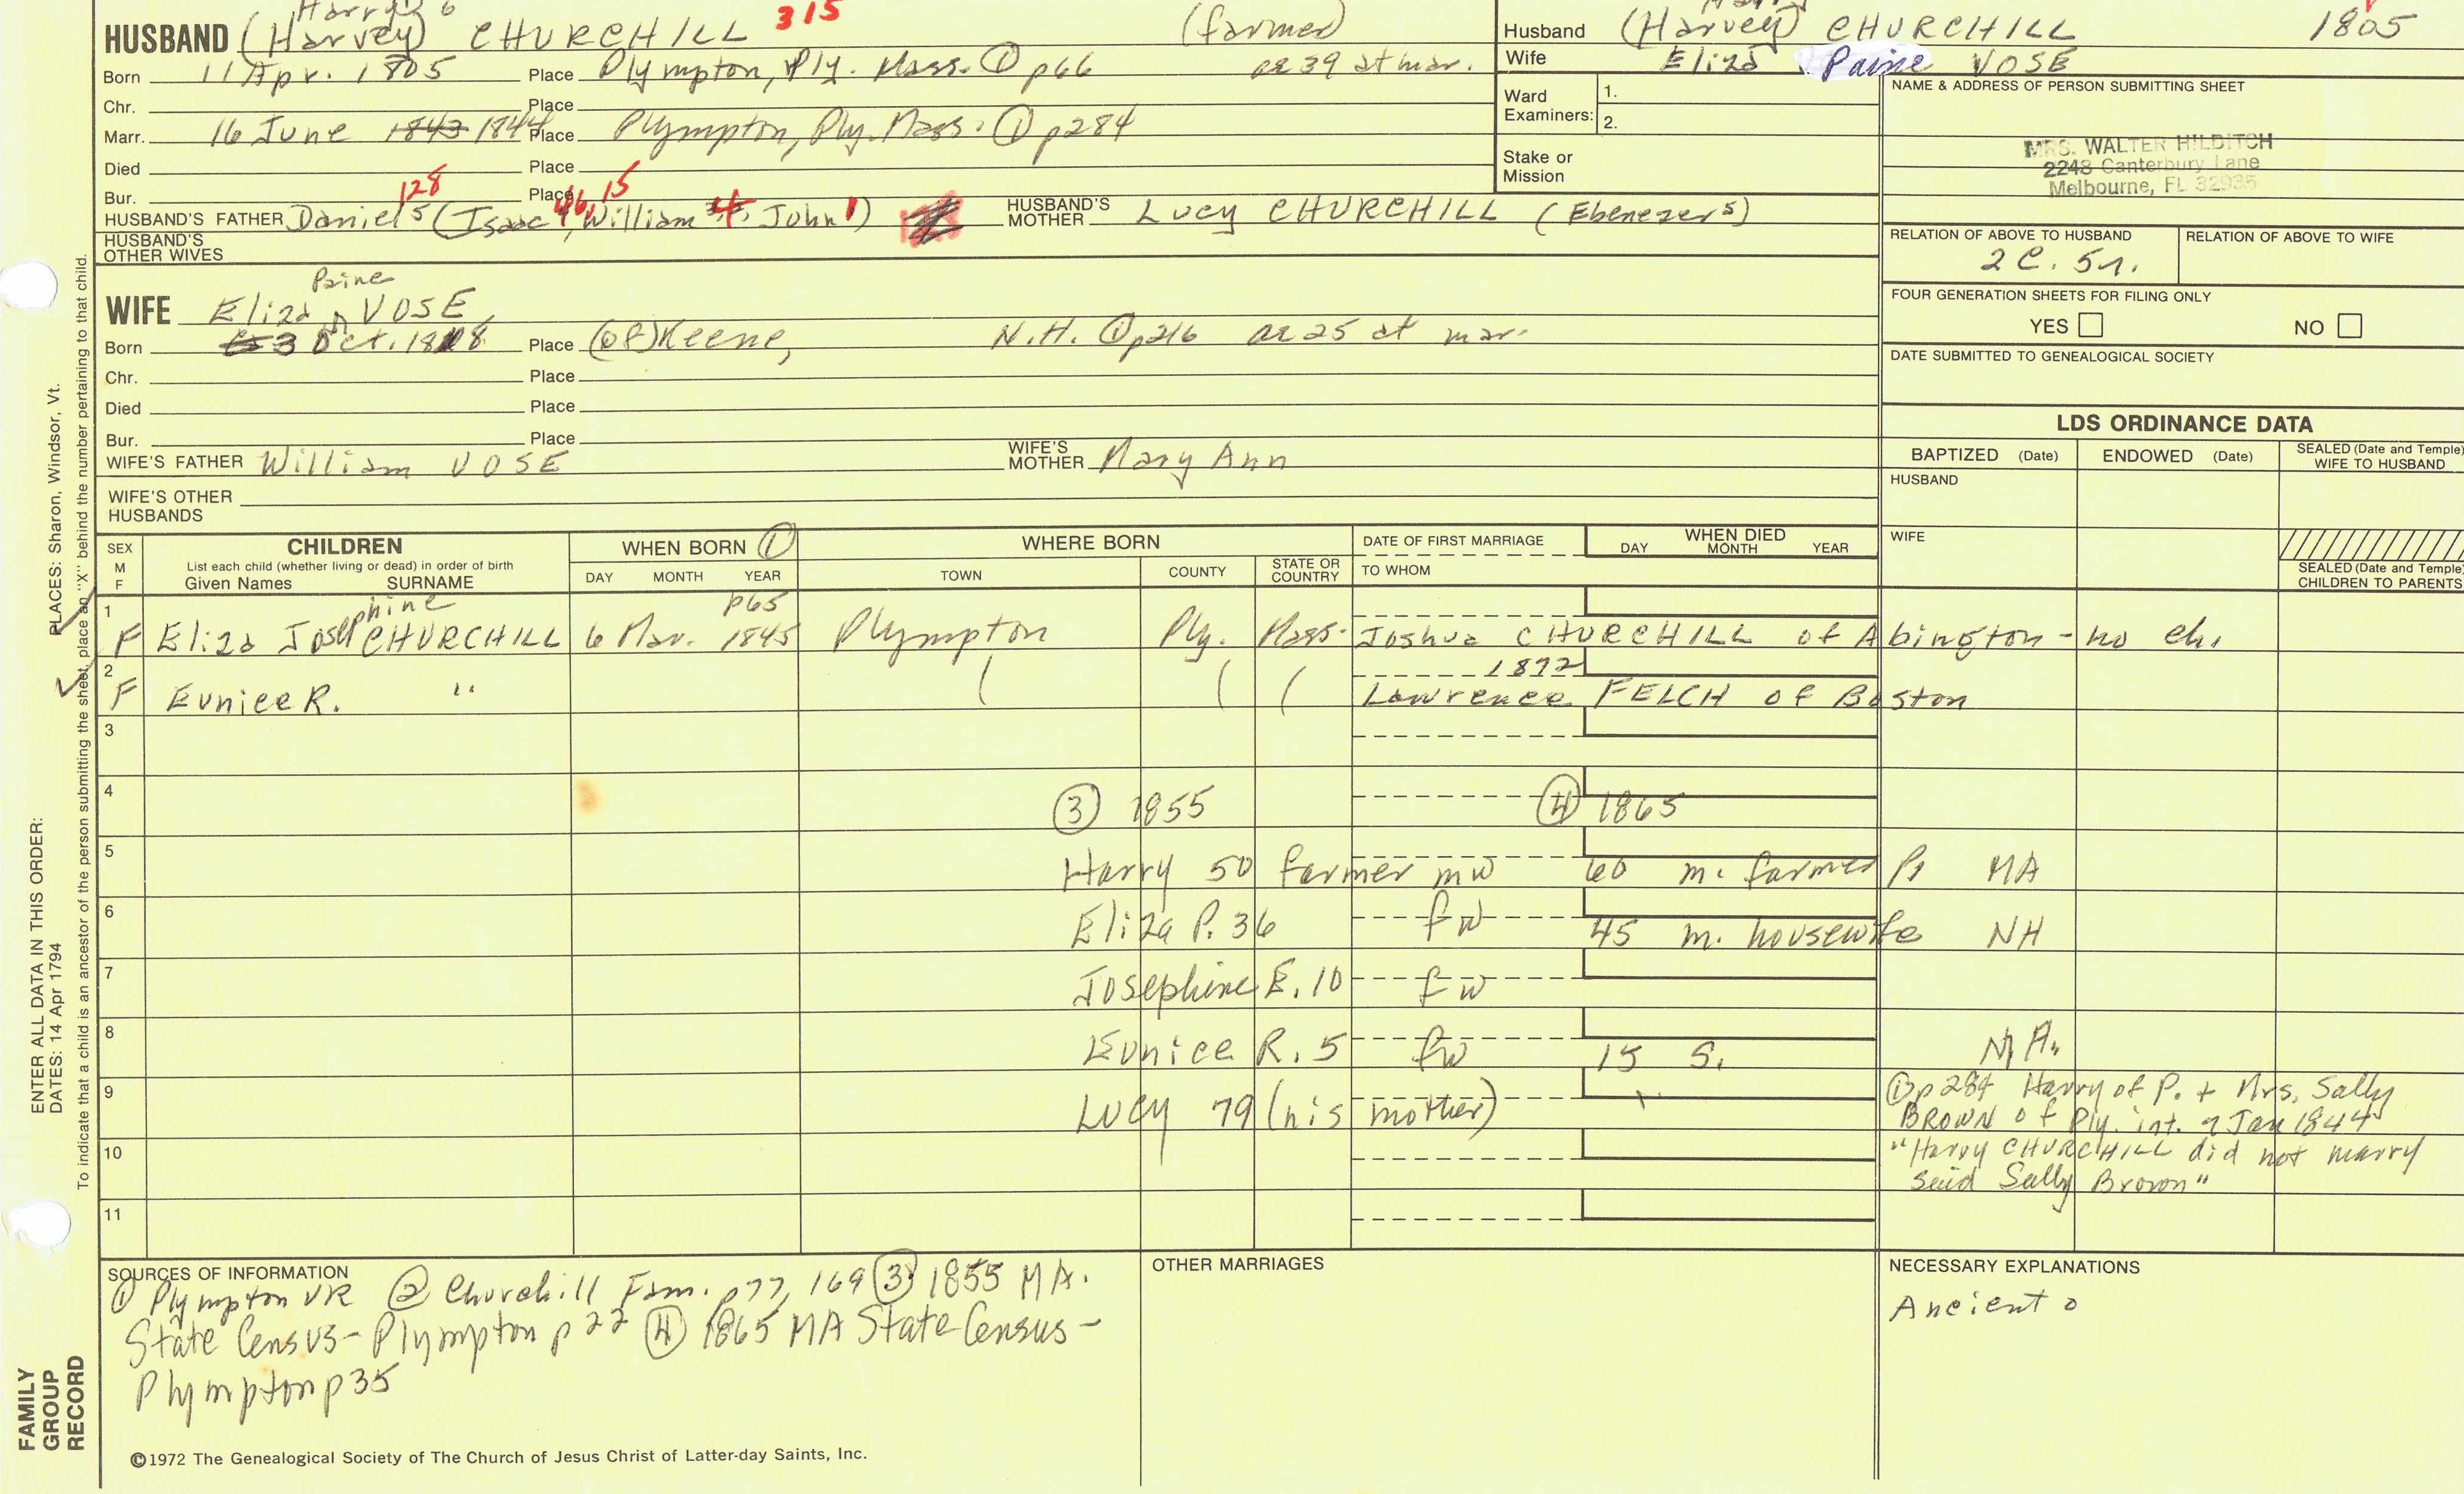 Harry 6
HUSBAND (Harvey) CHURCHILL 315 (farmer)
Born 11 Apr. 1805 Place Plympton, Ply. Mass. ① p66 ae 39 at mar.
Chr. Place
Marr. 16 June 1843 1844 Place Plympton, Ply. Mass. ① p284
Died Place
Bur. Place
128 46, 15
HUSBAND'S FATHER Daniel 5 (Isaac 4, William John 1) HUSBAND'S MOTHER Lucy CHURCHILL (Ebenezer 5)
HUSBAND'S OTHER WIVES
Paine
WIFE Eliza ^ VOSE
Born 3 Oct. 1818 Place (of) Keene, N.H. ① p216 ae 25 at mar.
Chr. Place
Died Place
Bur. Place
WIFE'S FATHER William VOSE WIFE'S MOTHER Mary Ann
WIFE'S OTHER HUSBANDS
Husband (Harvey) CHURCHILL 1805
Wife Eliza Paine VOSE
Ward Examiners: 1.
2.
Stake or Mission
NAME & ADDRESS OF PERSON SUBMITTING SHEET
MRS. WALTER HILDITCH
2248 Canterbury Lane
Melbourne, FL 32935
RELATION OF ABOVE TO HUSBAND RELATION OF ABOVE TO WIFE
2C. 5r.
FOUR GENERATION SHEETS FOR FILING ONLY
YES NO
DATE SUBMITTED TO GENEALOGICAL SOCIETY
LDS ORDINANCE DATA
BAPTIZED (Date) ENDOWED (Date) SEALED (Date and Temple) WIFE TO HUSBAND
HUSBAND
WIFE
SEALED (Date and Temple) CHILDREN TO PARENTS
SEX M F CHILDREN WHEN BORN ① WHERE BORN DATE OF FIRST MARRIAGE WHEN DIED
List each child (whether living or dead) in order of birth
Given Names SURNAME DAY MONTH YEAR TOWN COUNTY STATE OR COUNTRY TO WHOM DAY MONTH YEAR
1 phine p65
F Eliza Josep CHURCHILL 6 Mar. 1845 Plympton Ply. Mass. Joshua CHURCHILL of Abington - no ch.
2 1872
F Eunice R. " ( ( ( Lawrence FELCH of Boston
3
4 ③ 1855 ④ 1865
5 Harry 50 farmer m w 60 m. farmer MA
6 Eliza P. 36 f w 45 m. housewife NH
7 Josephine E. 10 f w
8 Eunice R. 5 f w 15 S. MA.
9 Lucy 79 (his mother)
10
11
① p 284 Harry of P. + Mrs. Sally
BROWN of Ply. int. 7 Jan 1844
"Harry CHURCHILL did not marry
said Sally Brown"
SOURCES OF INFORMATION
① Plympton VR ② Churchill Fam. p77, 169 ③ 1855 MA.
State Census - Plympton p 22 ④ 1865 MA State Census -
Plympton p 35
OTHER MARRIAGES
NECESSARY EXPLANATIONS
Ancient o
©1972 The Genealogical Society of The Church of Jesus Christ of Latter-day Saints, Inc.
PLACES: Sharon, Windsor, Vt.
To indicate that a child is an ancestor of the person submitting the sheet, place an "X" behind the number pertaining to that child.
ENTER ALL DATA IN THIS ORDER:
DATES: 14 Apr 1794
FAMILY
GROUP
RECORD